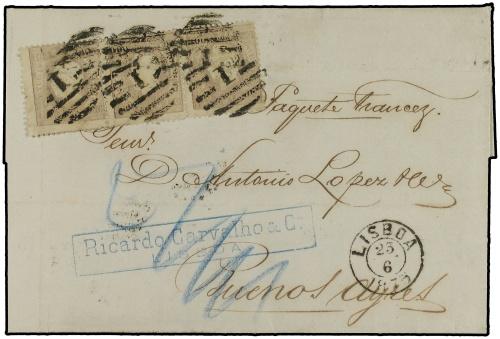 1 1 1
Paquete Francez
Senr.
D. Antonio Lopez
Ricardo Carvalho & C.
LISBOA
LISBOA
25
6
Buenos Ayres